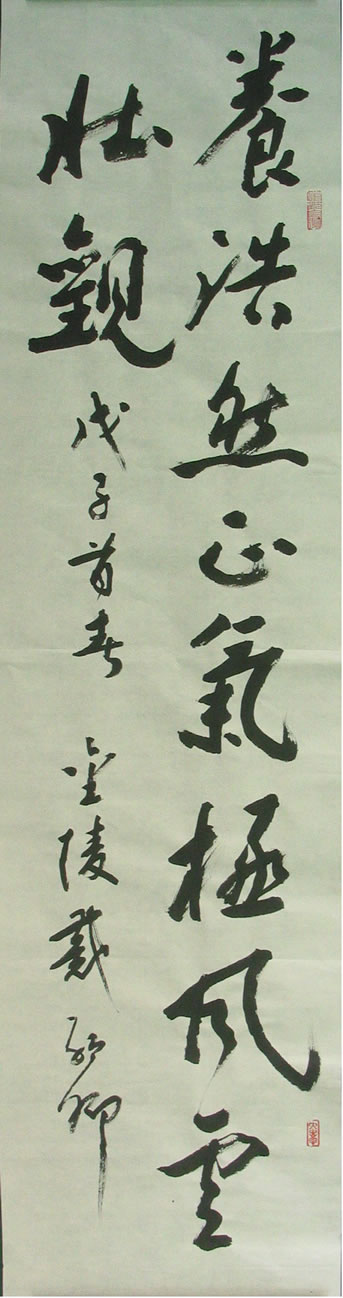 養浩然正氣極風雲
壯觀 戊子首春 金陵戴